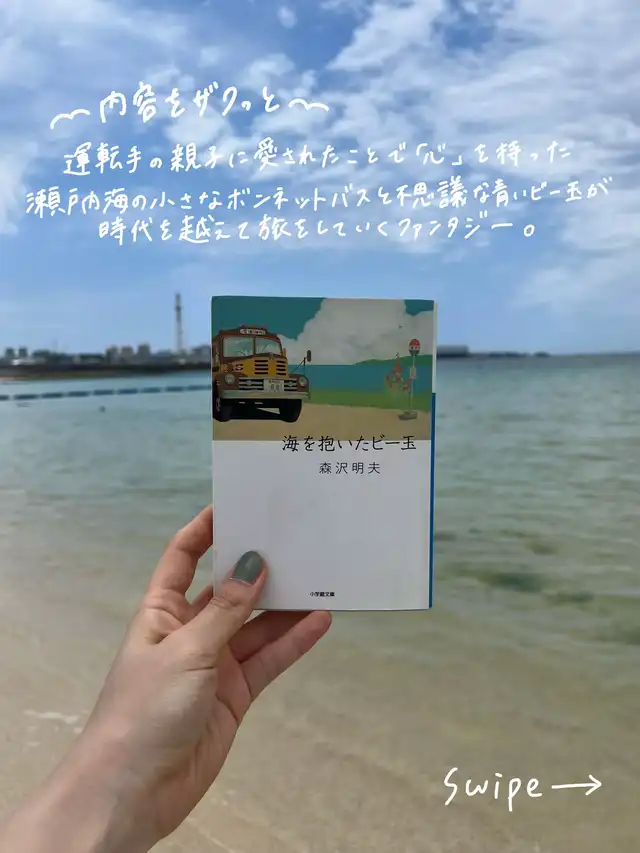 〜内容をザクっと〜
運転手の親子に愛されたことで「心」を持った
瀬戸内海の小さなボンネットバスと不思議な青いビー玉が
時代を越えて旅をしていくファンタジー。
海を抱いたビー玉
森沢明夫
小学館文庫
Swipe→